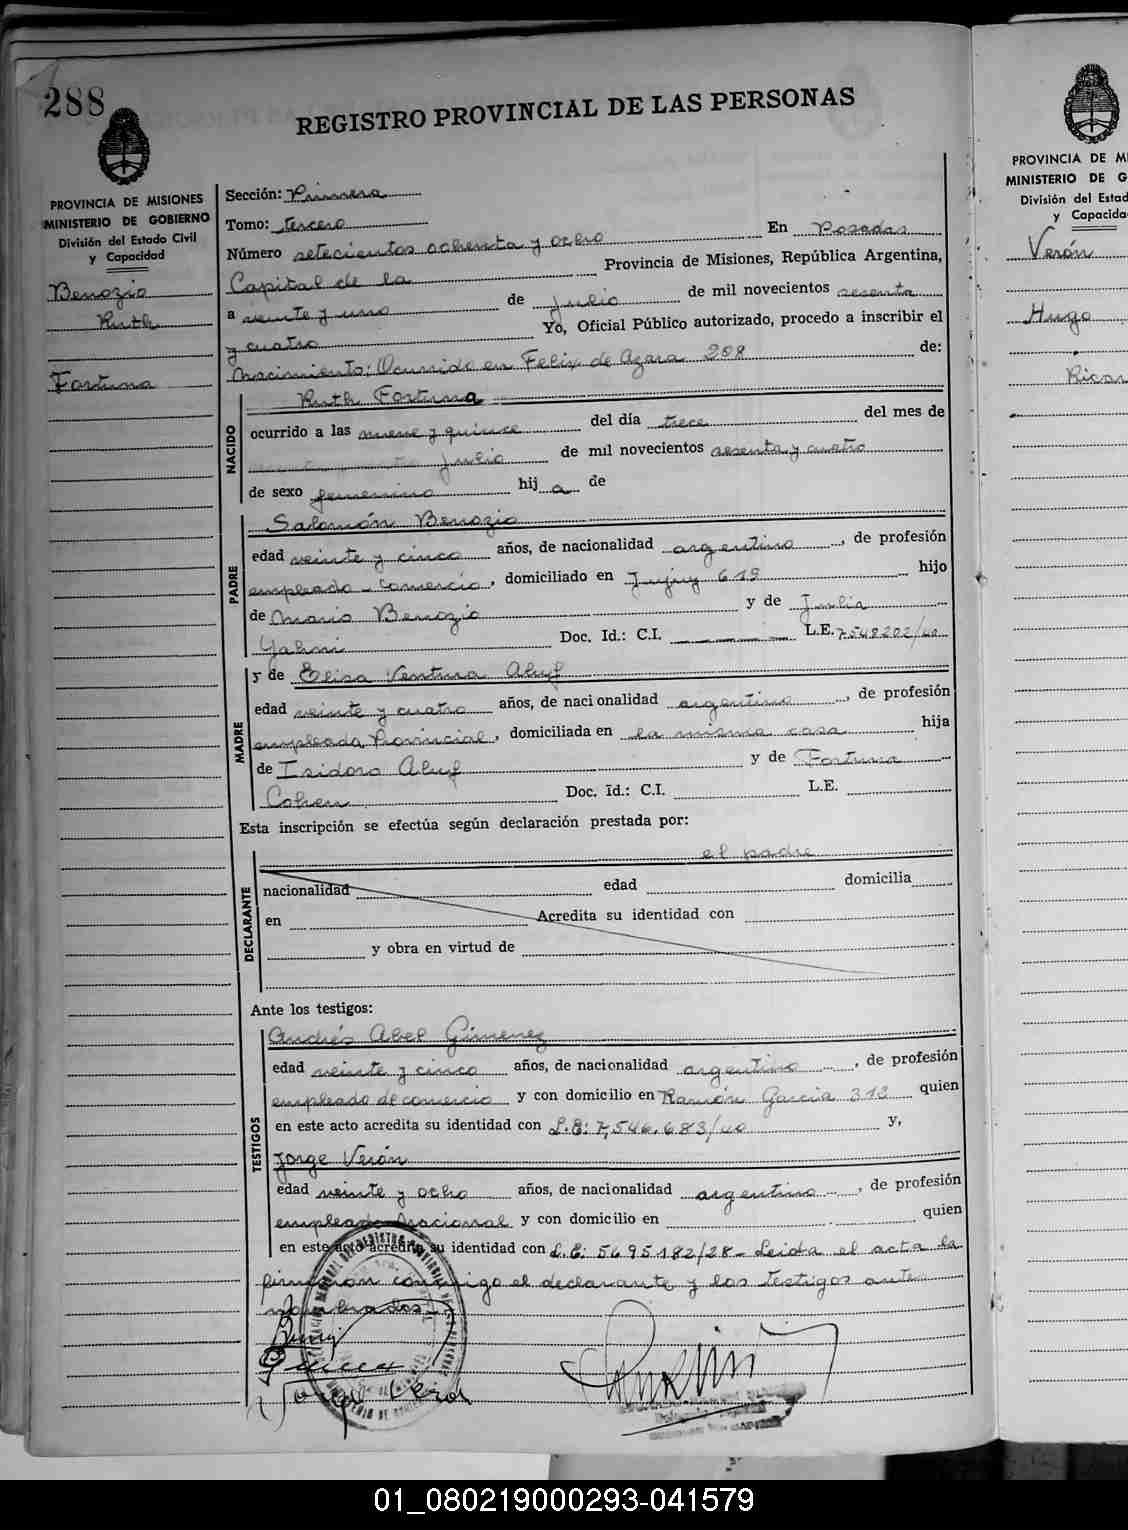 288
REGISTRO PROVINCIAL DE LAS PERSONAS
PROVINCIA DE MISIONES
MINISTERIO DE GOBIERNO
División del Estado Civil
y Capacidad
Benozio
Ruth
Fortuna
Sección: Primera
Tomo: tercero
Número setecientos ochenta y ocho En Posadas
Capital de la Provincia de Misiones, República Argentina,
a veinte y uno de Julio de mil novecientos sesenta
y cuatro Yo, Oficial Público autorizado, procedo a inscribir el
nacimiento; Ocurrido en Felix de Azara 208 de:
NACIDO
Ruth Fortuna
ocurrido a las nueve y quince del día trece del mes de
Julio de mil novecientos sesenta y cuatro
de sexo femenino hij a de
PADRE
Salomón Benozio
edad veinte y cinco años, de nacionalidad argentino, de profesión
empleado - comercio, domiciliado en Jujuy 619 hijo
de Mario Benozio y de Julia
Yahni Doc. Id.: C.I. L.E. 7548202/40
MADRE
y de Elisa Ventura Aluf
edad veinte y cuatro años, de nacionalidad argentina, de profesión
empleada Provincial, domiciliada en la misma casa hija
de Isidoro Aluf y de Fortuna
Cohen Doc. Id.: C.I. L.E.
Esta inscripción se efectúa según declaración prestada por:
el padre
DECLARANTE
nacionalidad edad domicilia
en Acredita su identidad con
y obra en virtud de
Ante los testigos:
TESTIGOS
Andrés Abel Gimenez
edad veinte y cinco años, de nacionalidad argentino, de profesión
empleado de comercio y con domicilio en Ramón Garcia 313 quien
en este acto acredita su identidad con L.E: 7,546.683/40 y,
Jorge Verón
edad veinte y ocho años, de nacionalidad argentino, de profesión
empleado Nacional y con domicilio en quien
en este acto acredita su identidad con L.E: 5695182/28 - Leida el acta la
firmaron conmigo el declarante y los testigos ante
nombrados
Jorge Verón
PROVINCIA DE M
MINISTERIO DE G
División del Estad
y Capacida
Verón
Hugo
Ricar
01_080219000293-041579